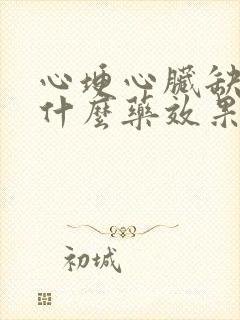 心埂心臟缺
什麼藥效果
初城